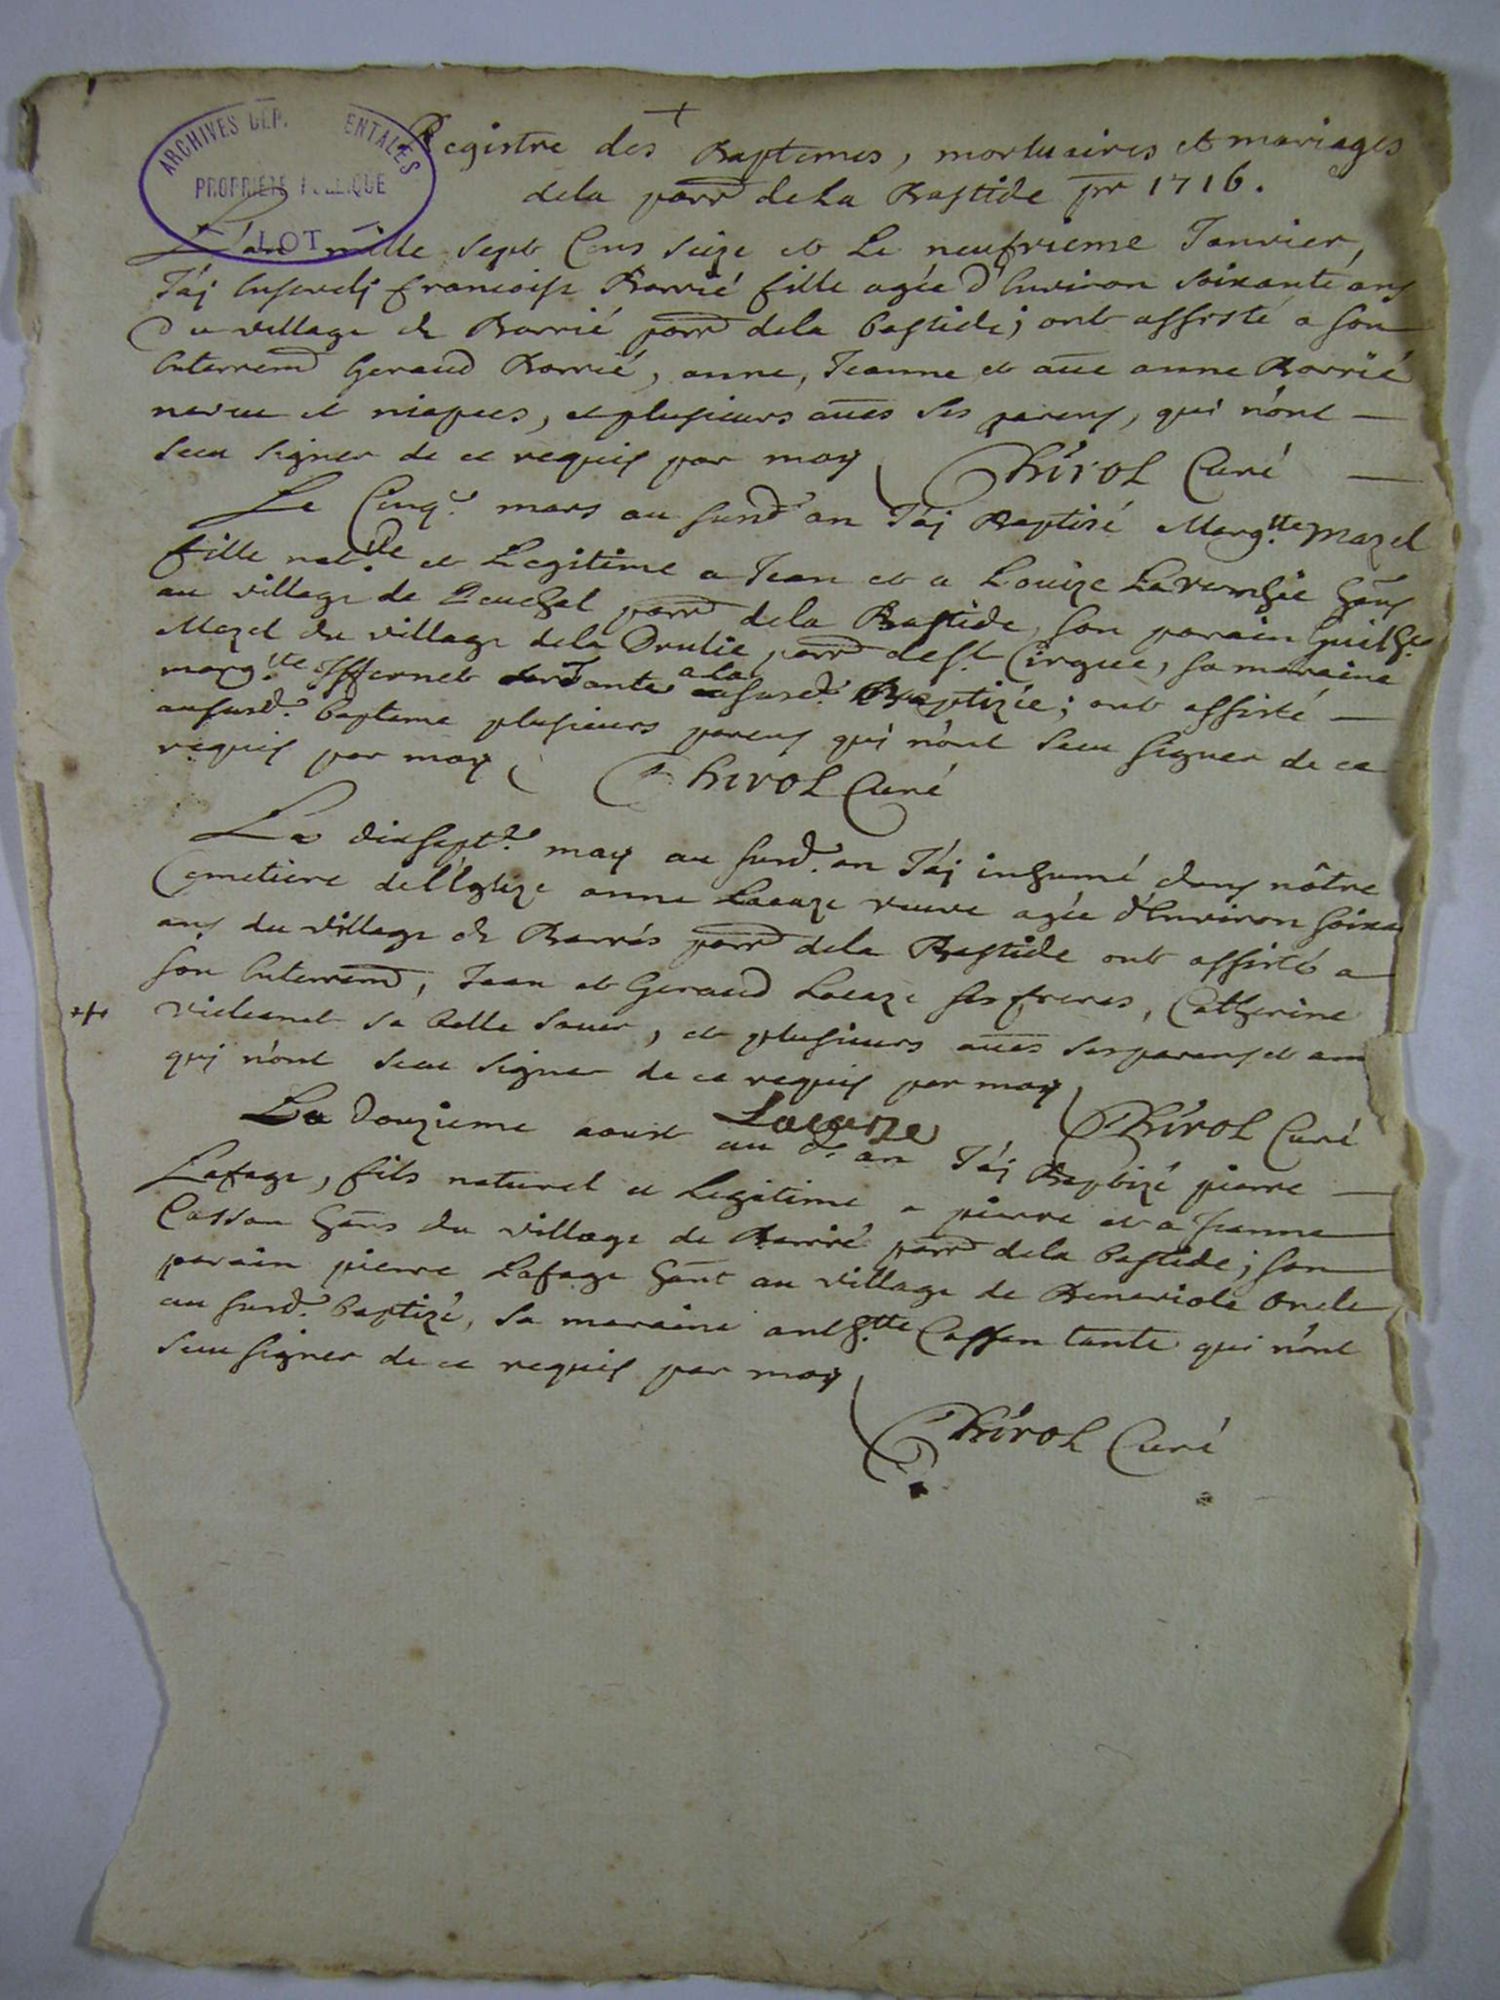 +
Registre des Baptemes, mortuaires et mariages
dela parr dela Bastide pr 1716.
ARCHIVES DEP ENTALES
PROPRIETE PUBLIQUE
LOT
L'an mille sept Cens seize et le neufvieme Janvier,
J'aj Enseveli francoise Barrié fille agée d'Environ soixante ans
Du village de Barrié parr dela bastide; ont assisté a son
Enterremt Geraud Barrié, anne, Jeanne et aue anne Barrié
neveu et niepces, et plusieurs aues ses parens, qui n'ont
sceu signer de ce requis par moy Thirol Curé
Le Cinq.e mars au susd.t an J'aj Baptisé Marg.tte Mazel
fille nat.lle et Legitime a Jean et a Louize Lavernhie hans
au village de parr dela Bastide, son parain Guilhe
Mazel du village dela Drulie parr de St Cirgue, sa maraine
marg.tte Iffernet tante a la susd.e Baptizée; ont assisté
au susd.t bapteme plusieurs parens qui n'ont sceu signer de ce
requis par moy Thirol Curé
Le dixsept.e may au susd.t an J'aj inhumé dans nôtre
Cemetiere del'Eglize anne Lacaze veuve agée d'Environ soixa
ans du village de Barrés parr dela Bastide ont assisté a
son Enterremt, Jean et Geraud Lacaze ses freres, Catherine
vielcanet sa belle soeur, et plusieurs aues ses parens et am
qui n'ont sceu signer de ce requis par moy Thirol Curé
Lacaze
Le Douzieme aoust au d.t an J'aj Baptizé pierre
Lafage, fils naturel et Legitime a pierre et a Jeanne
Cassan hans du village de Barrié parr dela bastide; son
parain pierre Lafage hant au village de oncle
au susd.t baptizé, sa maraine anth.tte Cassan tante qui n'ont
sceu signer de ce requis par moy
Thirol Curé